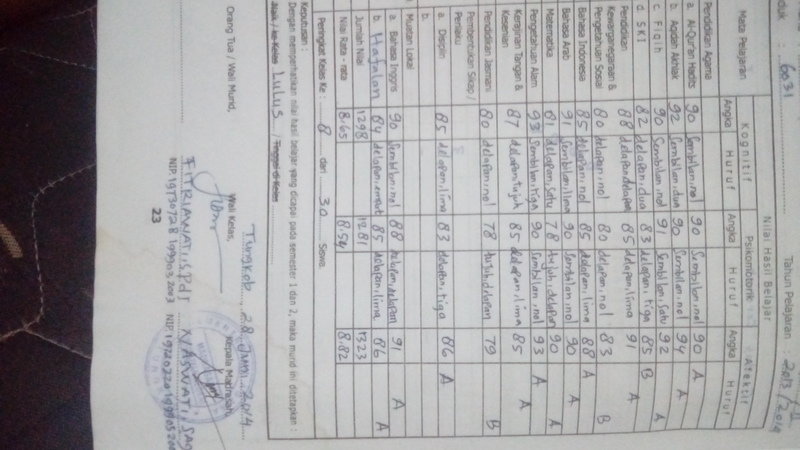 duk : 6031 Tahun Pelajaran : 2013/2014
Mata Pelajaran Nilai Hasil Belajar
Kognitif Psikomotorik Afektif
Angka Huruf Angka Huruf Angka Huruf
Pendidikan Agama
a. Al-Qur'an Hadits 90 Sembilan, nol 90 Sembilan, nol 90 A
b. Aqidah Akhlak 92 Sembilan, dua 90 Sembilan, nol 94 A
c Fiqih 90 Sembilan, nol 91 Sembilan, satu 92 A
d SKI 82 delapan, dua 83 delapan, tiga 85 B
Pendidikan Kewarganegaraan & 88 delapan delapan 85 delapan, lima 91 A
Pengetahuan Sosial 80 delapan, nol 80 delapan, nol 83 B
Bahasa Indonesia 85 delapan, nol 85 delapan, lima 88 A
Bahasa Arab 91 Sembilan, lima 90 Sembilan, nol 90 A
Matematika 81 delapan, satu 78 tujuh, delapan 90 A
Pengetahuan Alam 93 Sembilan, tiga 90 Sembilan, nol 93 A
Kerajinan Tangan & Kesenian 87 delapan, tujuh 85 delapan, lima 85 A
Pendidikan Jasmani 80 delapan, nol 78 tujuh, delapan 79 B
Pembentukan Sikap / Perilaku
a. Disiplin 85 delapan, lima 83 delapan, tiga 86 A
b.
Muatan Lokal
a. Bahasa Inggris 90 Sembilan, nol 88 delapan, delapan 91 A
b. Hafalan 84 delapan, empat 85 delapan, lima 86 A
Jumlah Nilai 1298 1281 1323
Nilai Rata - rata 8.65 8.54 8.82
Peringkat Kelas Ke : 8 dari 30 Siswa.
Keputusan :
Dengan memperhatikan nilai hasil belajar yang dicapai pada semester 1 dan 2, maka murid ini ditetapkan :
Naik / ke Kelas Lulus / Tinggal di Kelas
Tungkob, 28 Juni 2014
Orang Tua / Wali Murid, Wali Kelas, Kepala Madrasah,
FITRIAWATI, S.Pdi
NIP. 19730728 199903 2003 NIP.
23